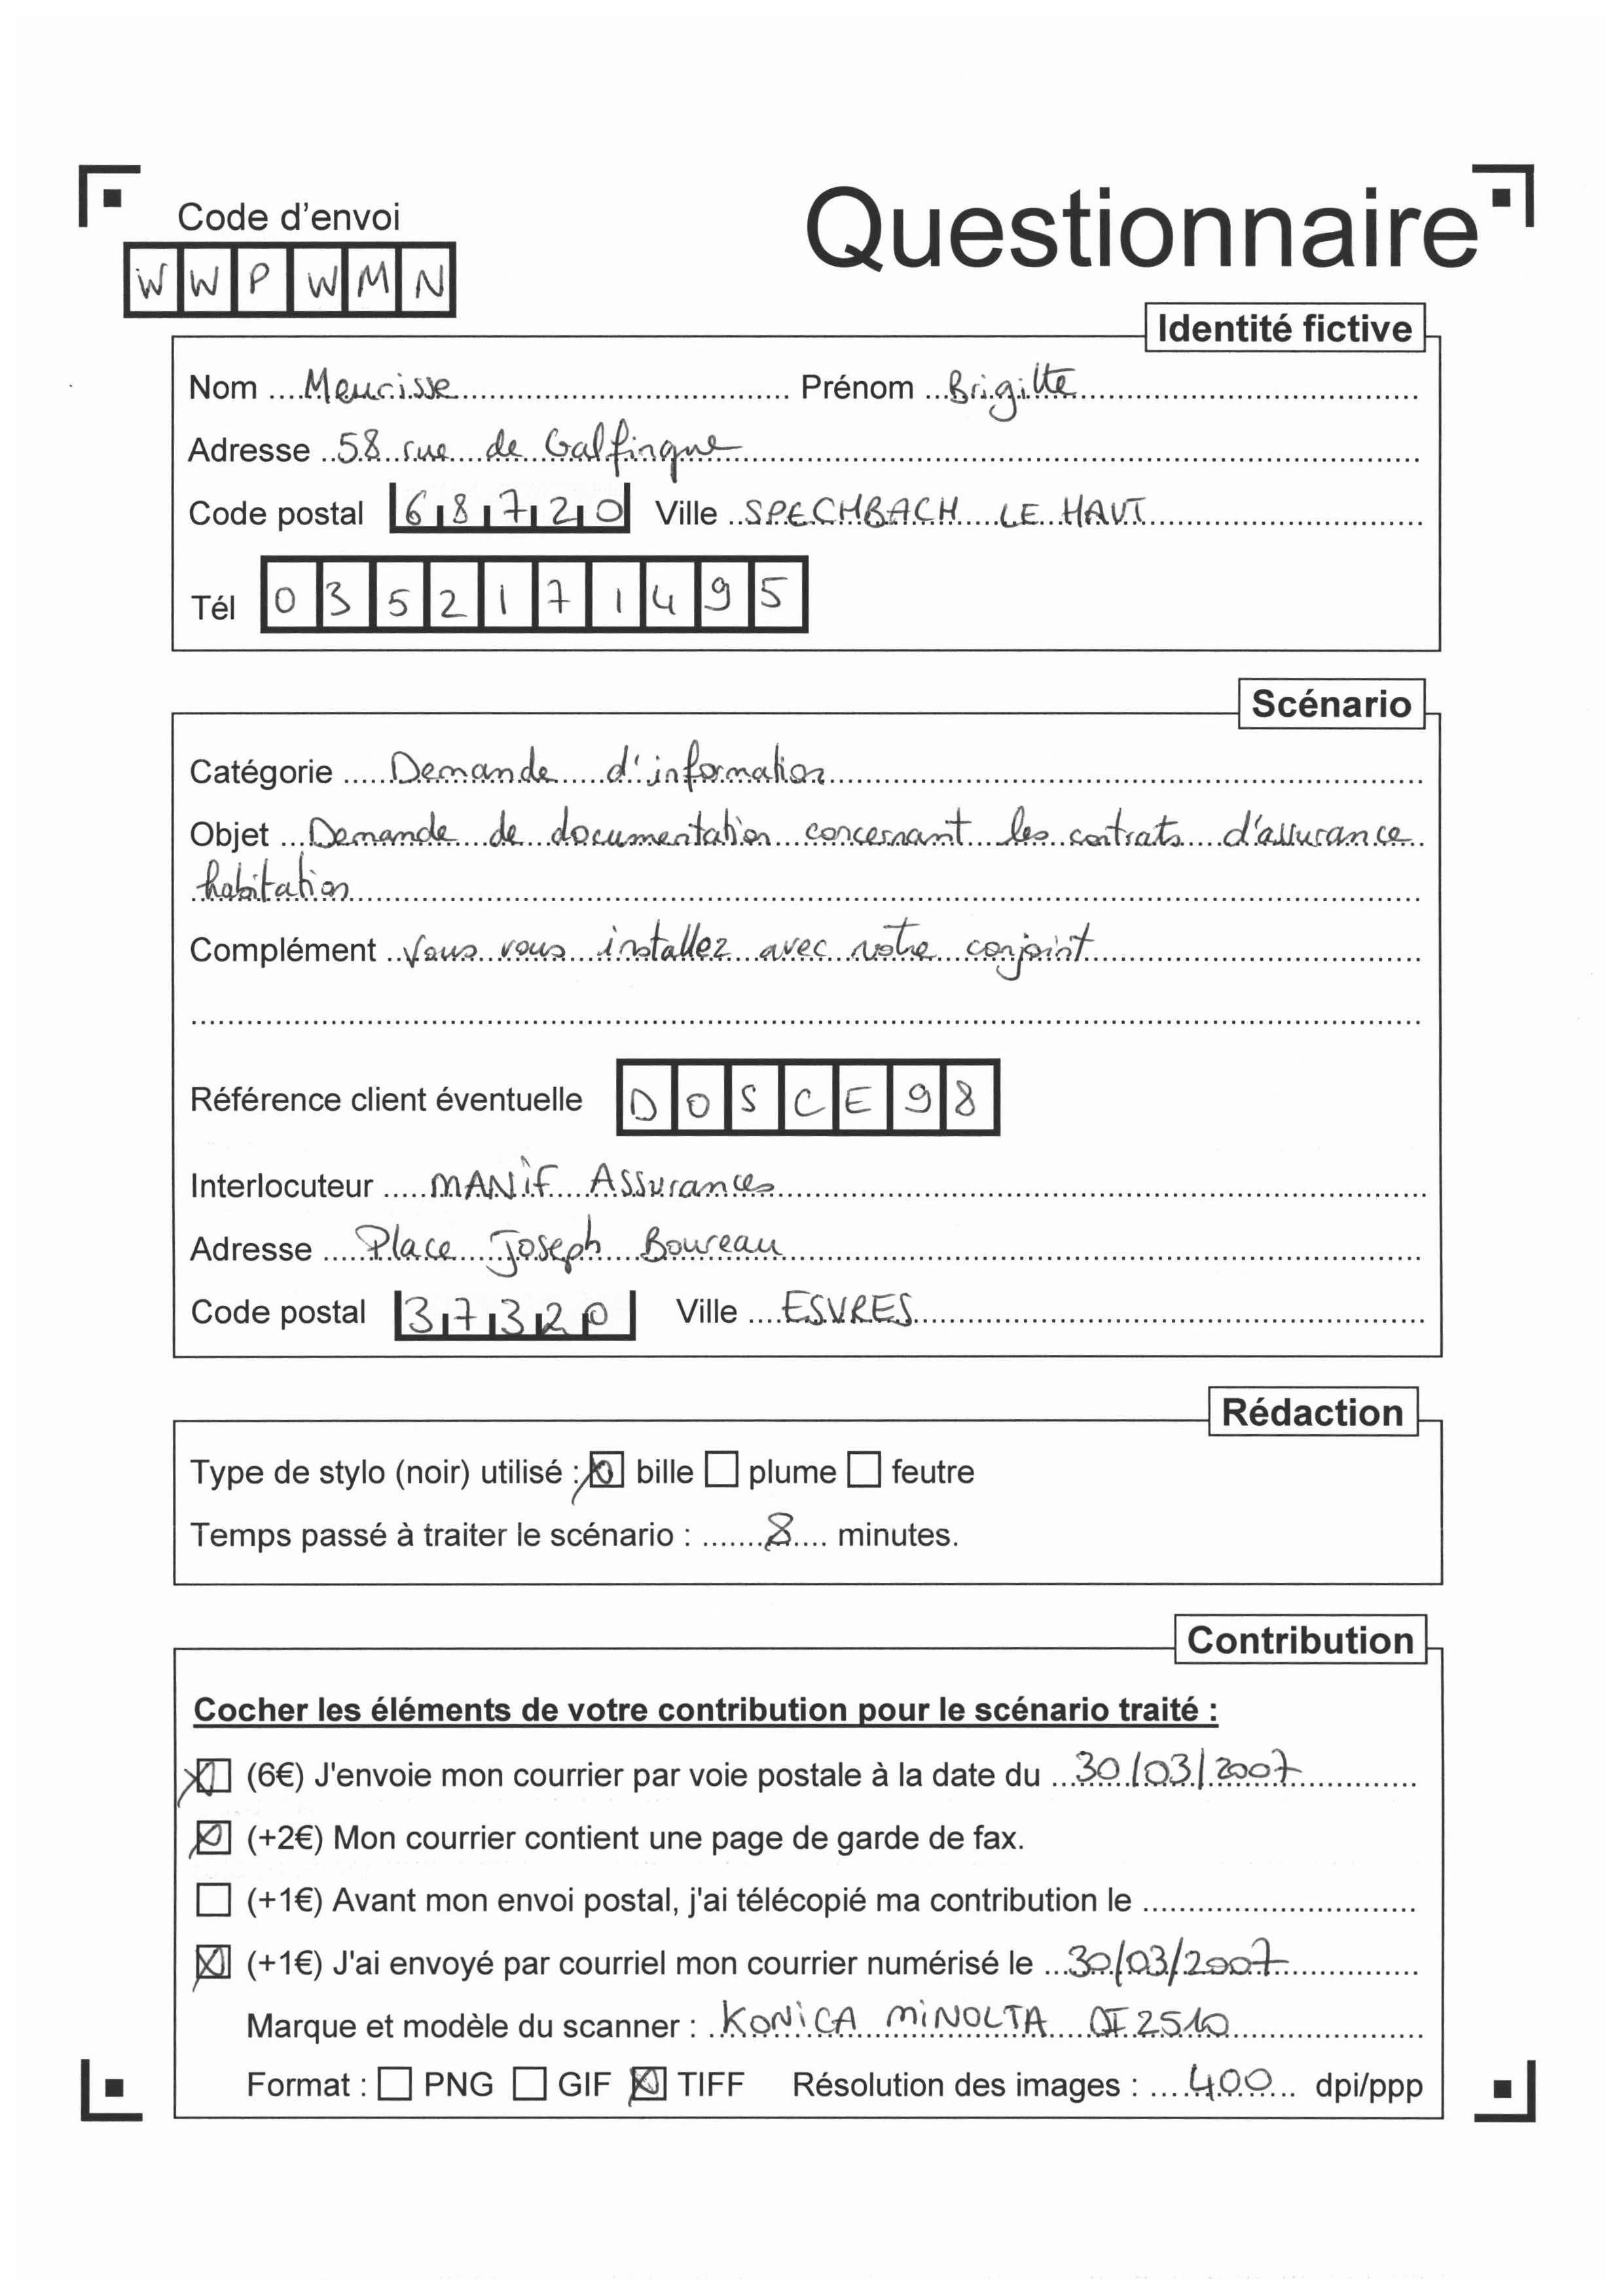 Code d'envoi
Questionnaire
W W P W M N
Identité fictive
Nom Meurisse Prénom Brigitte
Adresse 58 rue de Galfingue
Code postal 68720 Ville SPECHBACH LE HAUT
Tél 0352171495
Scénario
Catégorie Demande d'information
Objet Demande de documentation concernant les contrats d'assurance
habitation
Complément Vous vous installez avec votre conjoint
Référence client éventuelle DOSCE98
Interlocuteur MANIF Assurances
Adresse Place Joseph Boureau
Code postal 37320 Ville ESVRES
Rédaction
Type de stylo (noir) utilisé : ☒ bille ☐ plume ☐ feutre
Temps passé à traiter le scénario : 8 minutes.
Contribution
Cocher les éléments de votre contribution pour le scénario traité :
☒ (6€) J'envoie mon courrier par voie postale à la date du 30/03/2007
☒ (+2€) Mon courrier contient une page de garde de fax.
☐ (+1€) Avant mon envoi postal, j'ai télécopié ma contribution le
☒ (+1€) J'ai envoyé par courriel mon courrier numérisé le 30/03/2007
Marque et modèle du scanner : KONICA MINOLTA DI2510
Format : ☐ PNG ☐ GIF ☒ TIFF Résolution des images : 400 dpi/ppp